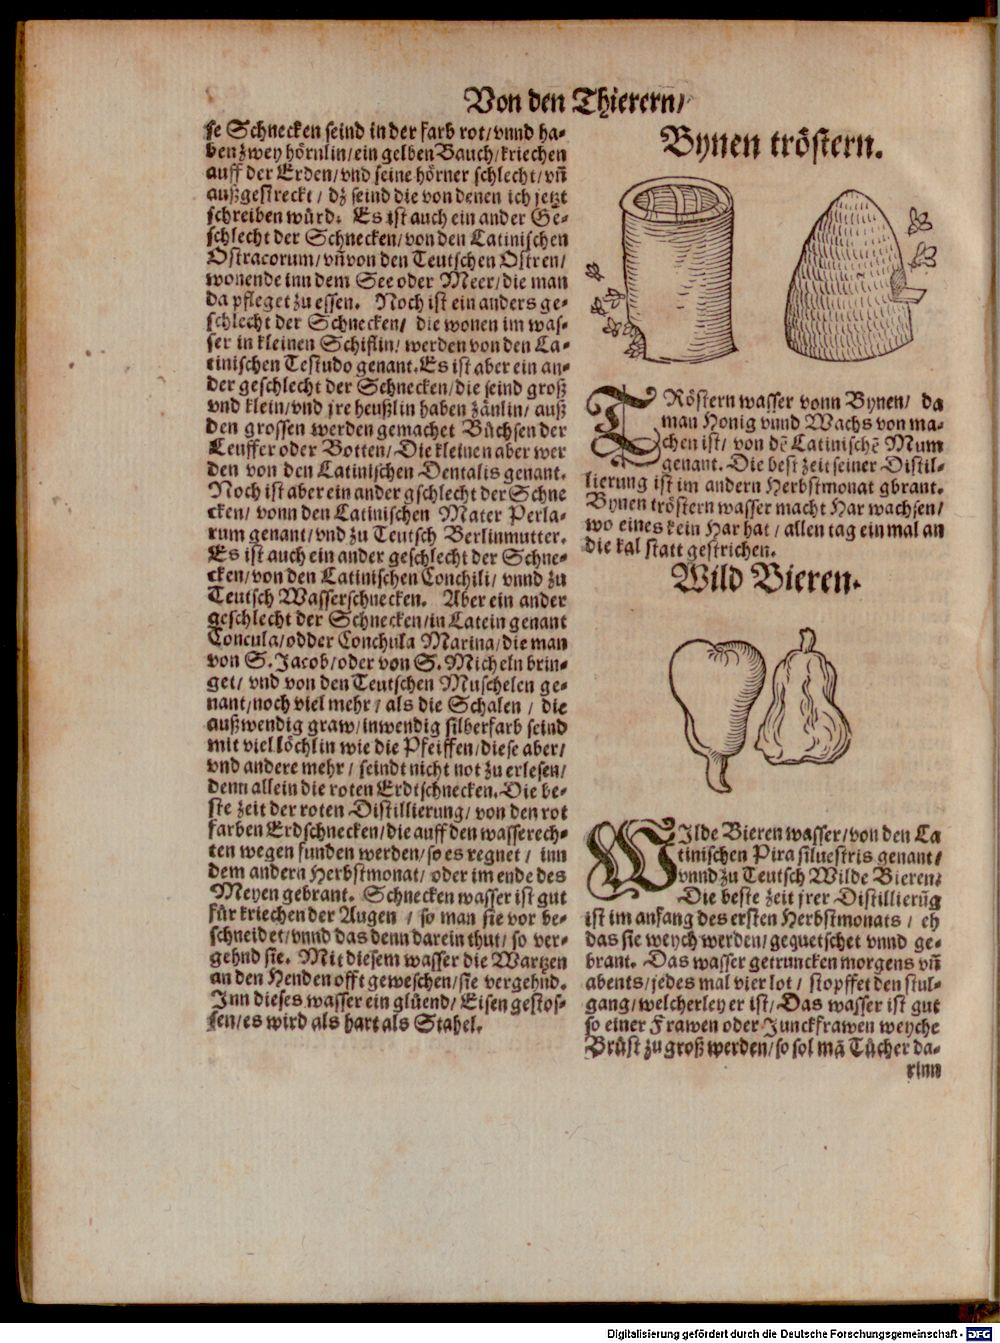 Von den Thierern/
se Schnecken seind in der farb rot/vnnd ha-
ben zwey hörnlin/ein gelben Bauch/kriechen
auff der Erden/vnd seine hörner schlecht/vñ
außgestreckt/ dz seind die von denen ich jetzt
schreiben würd. Es ist auch ein ander Ge-
schlecht der Schnecken/von den Latinischen
Ostracorum/vñ von den Teutschen Ostren/
wonende inn dem See oder Meer/die man
da pfleget zu essen. Noch ist ein anders ge-
schlecht der Schnecken/ die wonen im was-
ser in kleinen Schiflin/ werden von den La-
tinischen Testudo genant. Es ist aber ein an-
der geschlecht der Schnecken/die seind groß
vnd klein/vnd jre heußlin haben zänlin/ auß
den grossen werden gemachet Büchsen der
Leuffer oder Botten/Die kleinen aber wer
den von den Latinischen Dentalis genant.
Noch ist aber ein ander gschlecht der Schne
cken/ vonn den Latinischen Mater Perla-
rum genant/vnd zu Teutsch Berlinmutter.
Es ist auch ein ander geschlecht der Schne-
cken/von den Latinischen Conchili/ vnnd zu
Teutsch Wasserschnecken. Aber ein ander
geschlecht der Schnecken/in Latein genant
Concula/odder Conchula Marina/die man
von S. Jacob/oder von S. Micheln brin-
get/ vnd von den Teutschen Muschelen ge-
nant/noch viel mehr/ als die Schalen/ die
außwendig graw/inwendig silberfarb seind
mit viel löchlin wie die Pfeiffen/diese aber/
vnd andere mehr/ seindt nicht not zu erlesen/
denn allein die roten Erdtschnecken. Die be-
ste zeit der roten Distillierung/ von den rot
farben Erdschnecken/die auff den wasserech-
ten wegen funden werden/so es regnet/ inn
dem andern Herbstmonat/ oder im ende des
Meyen gebrant. Schnecken wasser ist gut
für kriechen der Augen/ so man sie vor be-
schneidet/vnnd das denn darein thut/ so ver-
gehnd sie. Mit diesem wasser die Wartzen
an den Henden offt geweschen/sie vergehnd.
Inn dieses wasser ein glüend/ Eisen gestos-
sen/es wird als hart als Stahel.
Bynen tröstern.
TRöstern wasser vonn Bynen/ da
man Honig vnnd Wachs von ma-
chen ist/ von dẽ Latinischẽ Mum
genant. Die best zeit seiner Distil-
lierung ist im andern Herbstmonat gbrant.
Bynen tröstern wasser macht Har wachsen/
wo eines kein Har hat/ allen tag ein mal an
die kal statt gestrichen.
Wild Bieren.
WIlde Bieren wasser/von den La
tinischen Pira siluestris genant/
vnnd zu Teutsch Wilde Bieren:
Die beste zeit jrer Distillierũg
ist im anfang des ersten Herbstmonats/ eh
das sie weych werden/gequetschet vnnd ge-
brant. Das wasser getruncken morgens vñ
abents/jedes mal vier lot/ stopffet den stul-
gang/welcherley er ist/Das wasser ist gut
so einer Frawen oder Junckfrawen weyche
Brüst zu groß werden/so sol mã Tücher da-
rinn
Digitalisierung gefördert durch die Deutsche Forschungsgemeinschaft - DFG